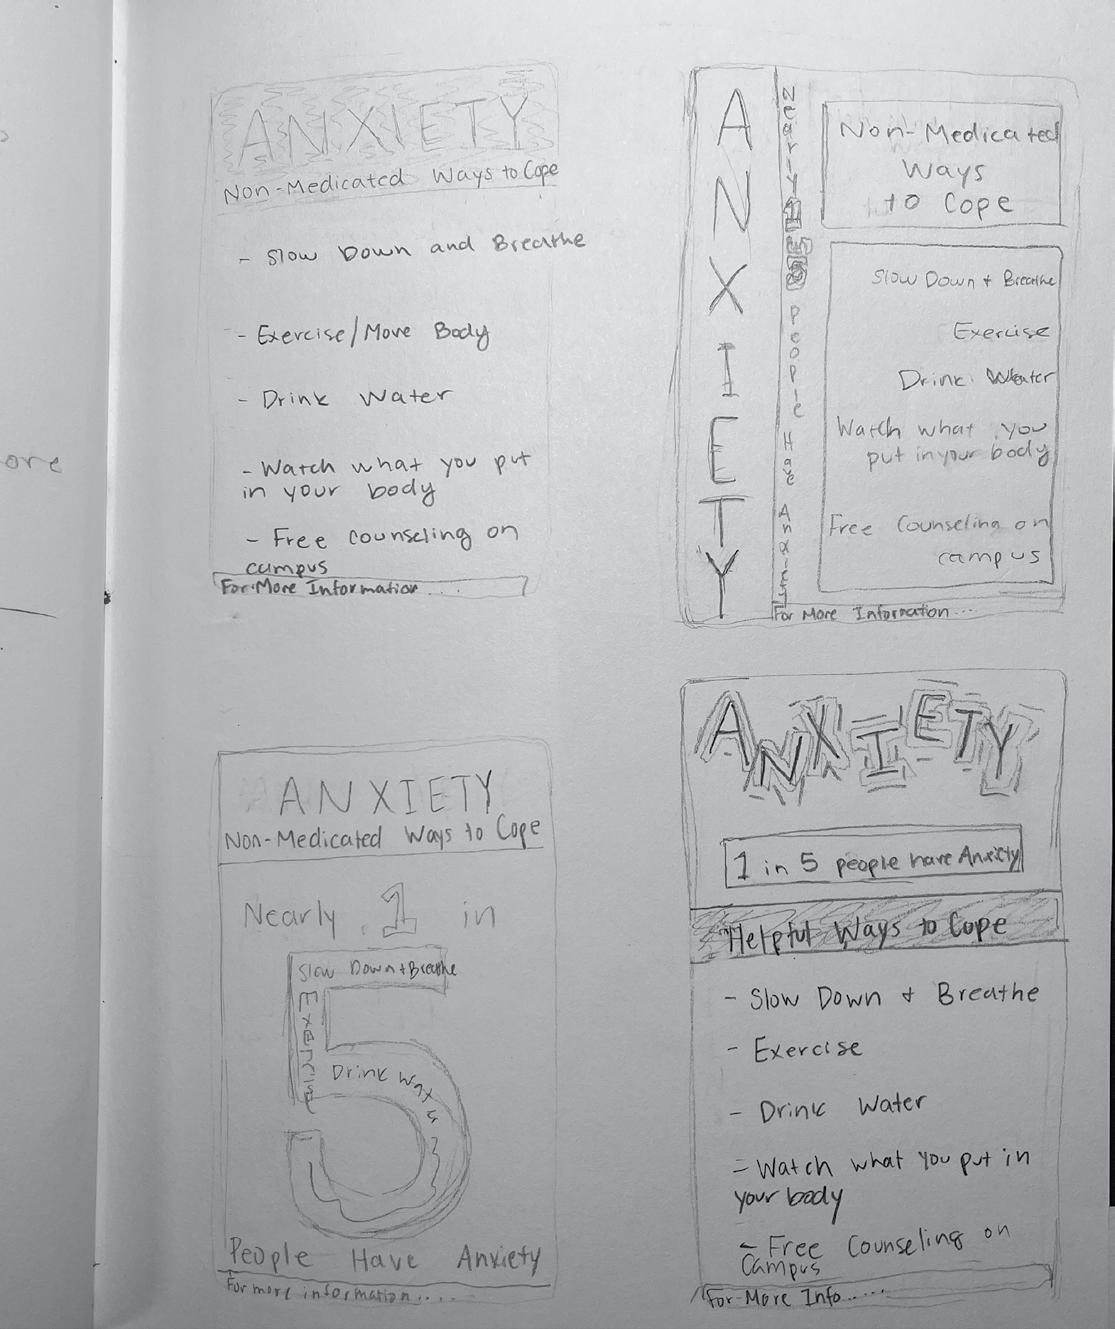 ore
ANXIETY
Non-Medicated Ways to Cope
- Slow Down and Breathe
- Exercise/Move Body
- Drink Water
- Watch what you put
in your body
- Free counseling on
campus
For More Information...
ANXIETY
Nearly 1 People Have Anxiety
Non-Medicated
Ways
to Cope
Slow Down + Breathe
Exercise
Drink Water
Watch what you
put in your body
Free Counseling on
campus
For More Information....
ANXIETY
Non-Medicated Ways to Cope
Nearly 1 in
5
Slow Down + Breathe
Exercise
Drink Water
People Have Anxiety
For more information....
ANXIETY
1 in 5 people have Anxiety
Helpful Ways to Cope
- Slow Down + Breathe
- Exercise
- Drink Water
- Watch what you put in
your body
- Free Counseling on
Campus
For More Info......